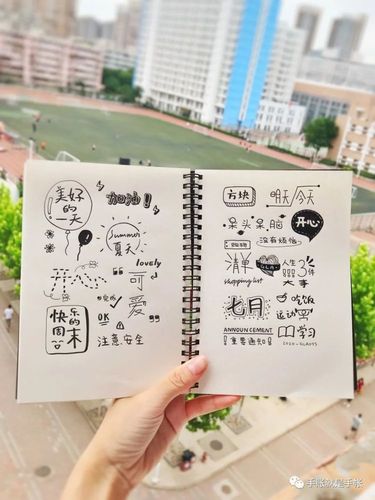 美好
的
一天
加油!
Summer
夏天
lovely
开心
“可
爱”
完成
OK
注意安全
快乐的
周末
方块
明天/今天
呆头呆脑
开心
没有烦恼
清单
shopping list
人生
3件
大事
吃饭
运动
学习
七月
ANNOUNCEMENT
!重要通知!
手账就是手账